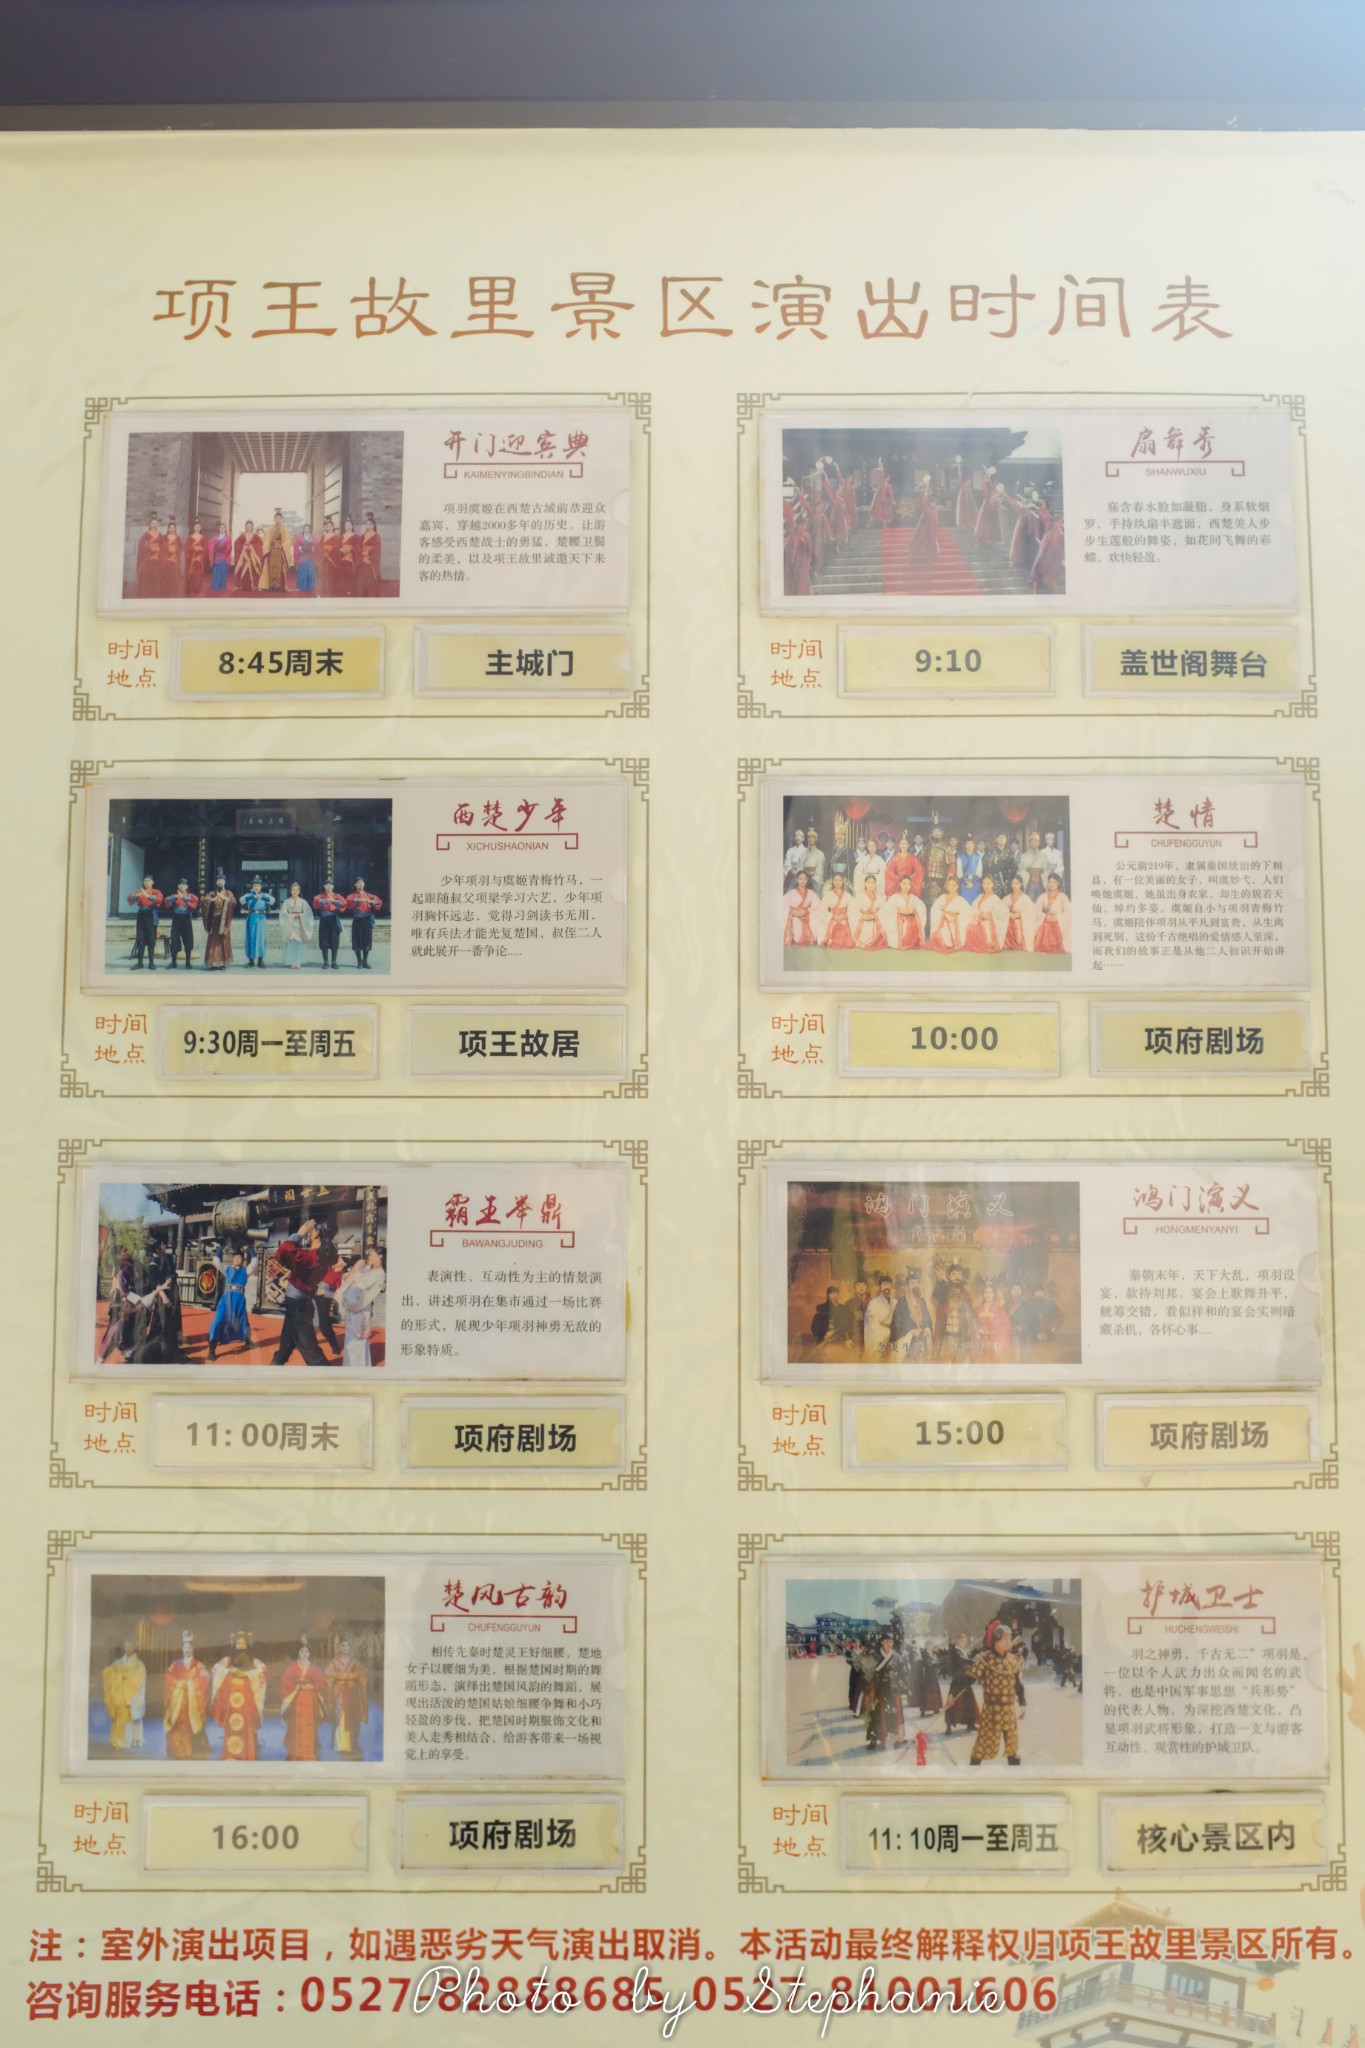 项王故里景区演出时间表
开门迎宾典
KAIMENYINGBINDIAN
项羽虞姬在西楚古城前恭迎众
嘉宾，穿越2000多年的历史，让游
客感受西楚战士的勇猛，楚腰卫鬓
的柔美，以及项王故里诚邀天下来
客的热情。
时间
地点
8:45周末
主城门
扇舞秀
SHANWUXIU
寐含春水脸如凝脂，身系软烟
罗，手持纨扇半遮面，西楚美人步
步生莲般的舞姿，如花间飞舞的彩
蝶，欢快轻盈。
时间
地点
9:10
盖世阁舞台
西楚少年
XICHUSHAONIAN
少年项羽与虞姬青梅竹马，一
起跟随叔父项梁学习六艺，少年项
羽胸怀远志，觉得习剑读书无用，
唯有兵法才能光复楚国，叔侄二人
就此展开一番争论.....
时间
地点
9:30周一至周五
项王故居
楚情
CHUFENGGUYUN
公元前219年，隶属秦国统治的下相
县，有一位美丽的女子，叫虞妙弋，人们
唤她虞姬，她虽出身农家，却生的貌若天
仙，绰约多姿。虞姬自小与项羽青梅竹
马，虞姬陪伴项羽从平凡到富贵，从生离
到死别，这份千古绝唱的爱情感人至深，
而我们的故事正是从他二人初识开始讲
起……
时间
地点
10:00
项府剧场
霸王举鼎
BAWANGJUDING
表演性、互动性为主的情景演
出，讲述项羽在集市通过一场比赛
的形式，展现少年项羽神勇无敌的
形象特质。
时间
地点
11:00周末
项府剧场
鸿门演义
鸿门演义
HONGMENYANYI
秦朝末年，天下大乱，项羽设
宴，款待刘邦。宴会上歌舞升平，
觥筹交错，看似祥和的宴会实则暗
藏杀机，各怀心事....
时间
地点
15:00
项府剧场
楚风古韵
CHUFENGGUYUN
相传先秦时楚灵王好细腰，楚地
女子以腰细为美，根据楚国时期的舞
蹈形态，演绎出楚国风韵的舞蹈，展
现出活泼的楚国姑娘细腰争舞和小巧
轻盈的步伐，把楚国时期服饰文化和
美人走秀相结合，给游客带来一场视
觉上的享受。
时间
地点
16:00
项府剧场
护城卫士
HUCHENGWEISHI
羽之神勇，千古无二”项羽是，
一位以个人武力出众而闻名的武
将，也是中国军事思想“兵形势”
的代表人物，为深挖西楚文化，凸
显项羽武将形象，打造一支与游客
互动性、观赏性的护城卫队。
时间
地点
11:10周一至周五
核心景区内
注：室外演出项目，如遇恶劣天气演出取消。本活动最终解释权归项王故里景区所有。
咨询服务电话：0527-82888685 0527-81001606
Photo by Stephanie